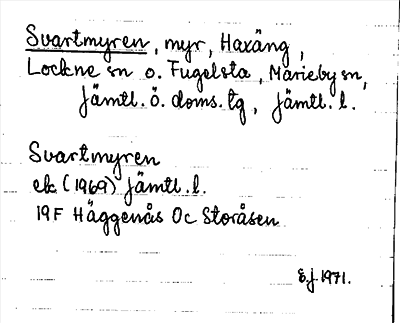 Svartmyren, myr, Haxäng,
Lockne sn o. Fugelsta, Marieby sn,
Jämtl. ö. doms. tg, Jämtl. l.
Svartmyren
ek (1969) Jämtl. l.
19F Häggenås Oc Storåsen
E.J. 1971.